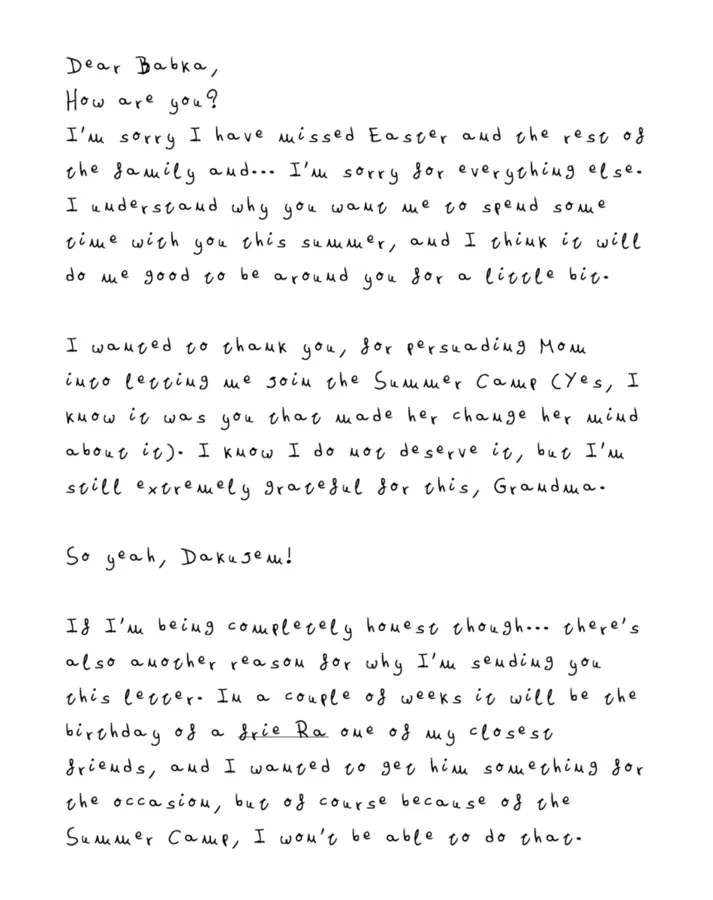 Dear Babka,
How are you?
I'm sorry I have missed Easter and the rest of
the family and... I'm sorry for everything else.
I understand why you want me to spend some
time with you this summer, and I think it will
do me good to be around you for a little bit.

I wanted to thank you, for persuading Mom
into letting me join the Summer Camp (Yes, I
know it was you that made her change her mind
about it). I know I do not deserve it, but I'm
still extremely grateful for this, Grandma.

So yeah, Dakujem!

If I'm being completely honest though... there's
also another reason for why I'm sending you
this letter. In a couple of weeks it will be the
birthday of a frie Ra one of my closest
friends, and I wanted to get him something for
the occasion, but of course because of the
Summer Camp, I won't be able to do that.